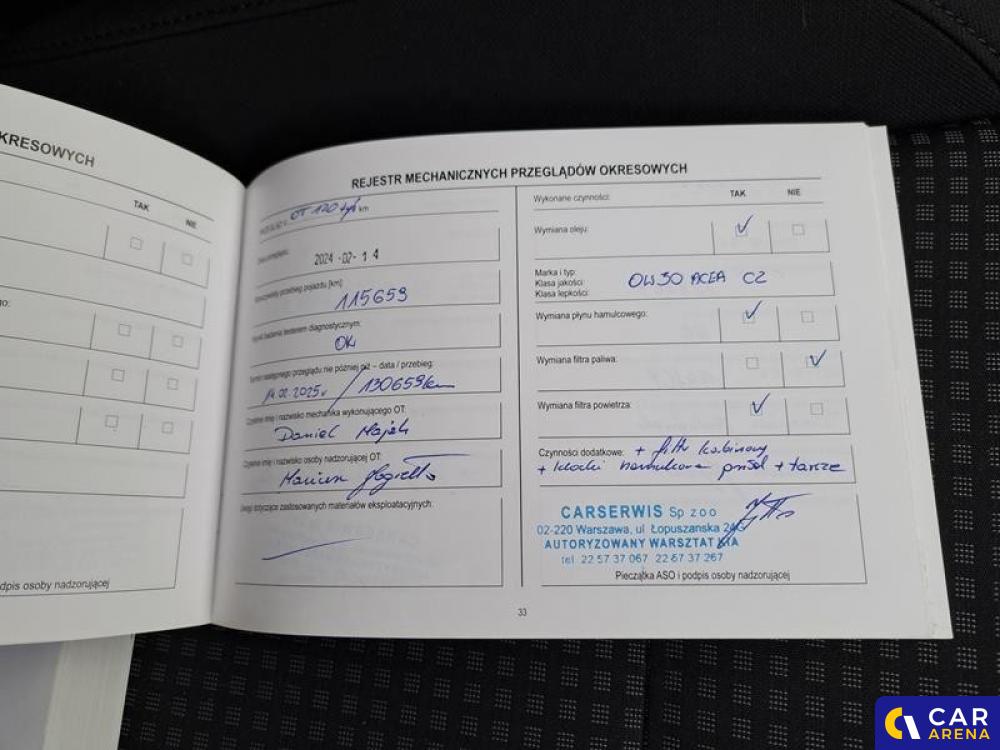 KRESOWYCH
TAK
NIE
go:
dpis osoby nadzorującej
REJESTR MECHANICZNYCH PRZEGLĄDÓW OKRESOWYCH
OT 120 tyś km
2024-02-14
przebieg pojazdu [km]:
115659
badania testerem diagnostycznym:
OK
następnego przeglądu nie później niż – data / przebieg:
14.02.2025r / 130659km
Czytelne imię i nazwisko mechanika wykonującego OT:
Daniel Majek
Czytelne imię i nazwisko osoby nadzorującej OT:
Uwagi dotyczące zastosowanych materiałów eksploatacyjnych:
Wykonane czynności:
TAK
NIE
Wymiana oleju:
Marka i typ:
Klasa jakości:
Klasa lepkości:
0W30 ACEA C2
Wymiana płynu hamulcowego:
Wymiana filtra paliwa:
Wymiana filtra powietrza:
Czynności dodatkowe: + filtr kabinowy
+ klocki hamulcowe przód + tarcze
CARSERWIS Sp z o o
02-220 Warszawa, ul Łopuszanska
AUTORYZOWANY WARSZTAT KIA
tel. 22 57 37 067 22 57 37 267
Pieczątka ASO i podpis osoby nadzorującej
33
CAR
ARENA